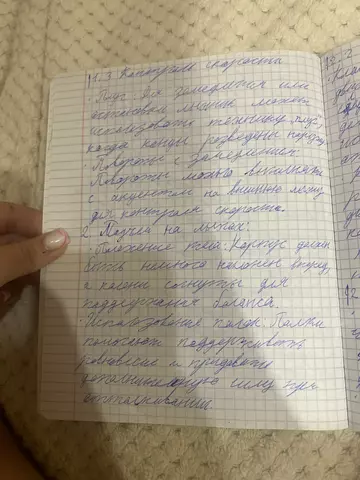 1.3 Контроль скорости
· Плуг: Для замедления или
остановки лыжник может
использовать технику "плуг",
когда концы разведены наружу
· Повороты с замедлением:
Повороты можно выполнять
с акцентом на внешнюю лыжу
для контроля скорости.
2. Подъем на лыжах:
· Положение тела: Корпус должен
быть немного наклонен вперед,
а колени согнуты для
поддержания баланса.
· Использование палок: Палки
помогают поддерживать
равновесие и придавать
дополнительную силу при
отталкивании.
12.2